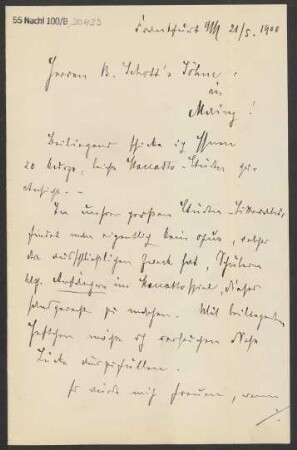 55 Nachl 100/B, 20423
Frankfurt a/M 21/5. 1900
Herren B. Schott's Söhne,
in
Mainz!
Beiliegend schicke ich Ihnen
20 kurze, leichte Staccato-Etuden zur
Ansicht. -
In unsrer großen Etuden-Litteratur
findet man eigentlich kein opus, welches
den ausschließlichen Zweck hat, Schülern
Anfängern im Staccatospiel, dieses
handgerecht zu machen. Mit beiliegenden
Heftchen möchte ich versuchen diese
Lücke auszufüllen.
Es würde mich freuen, wenn